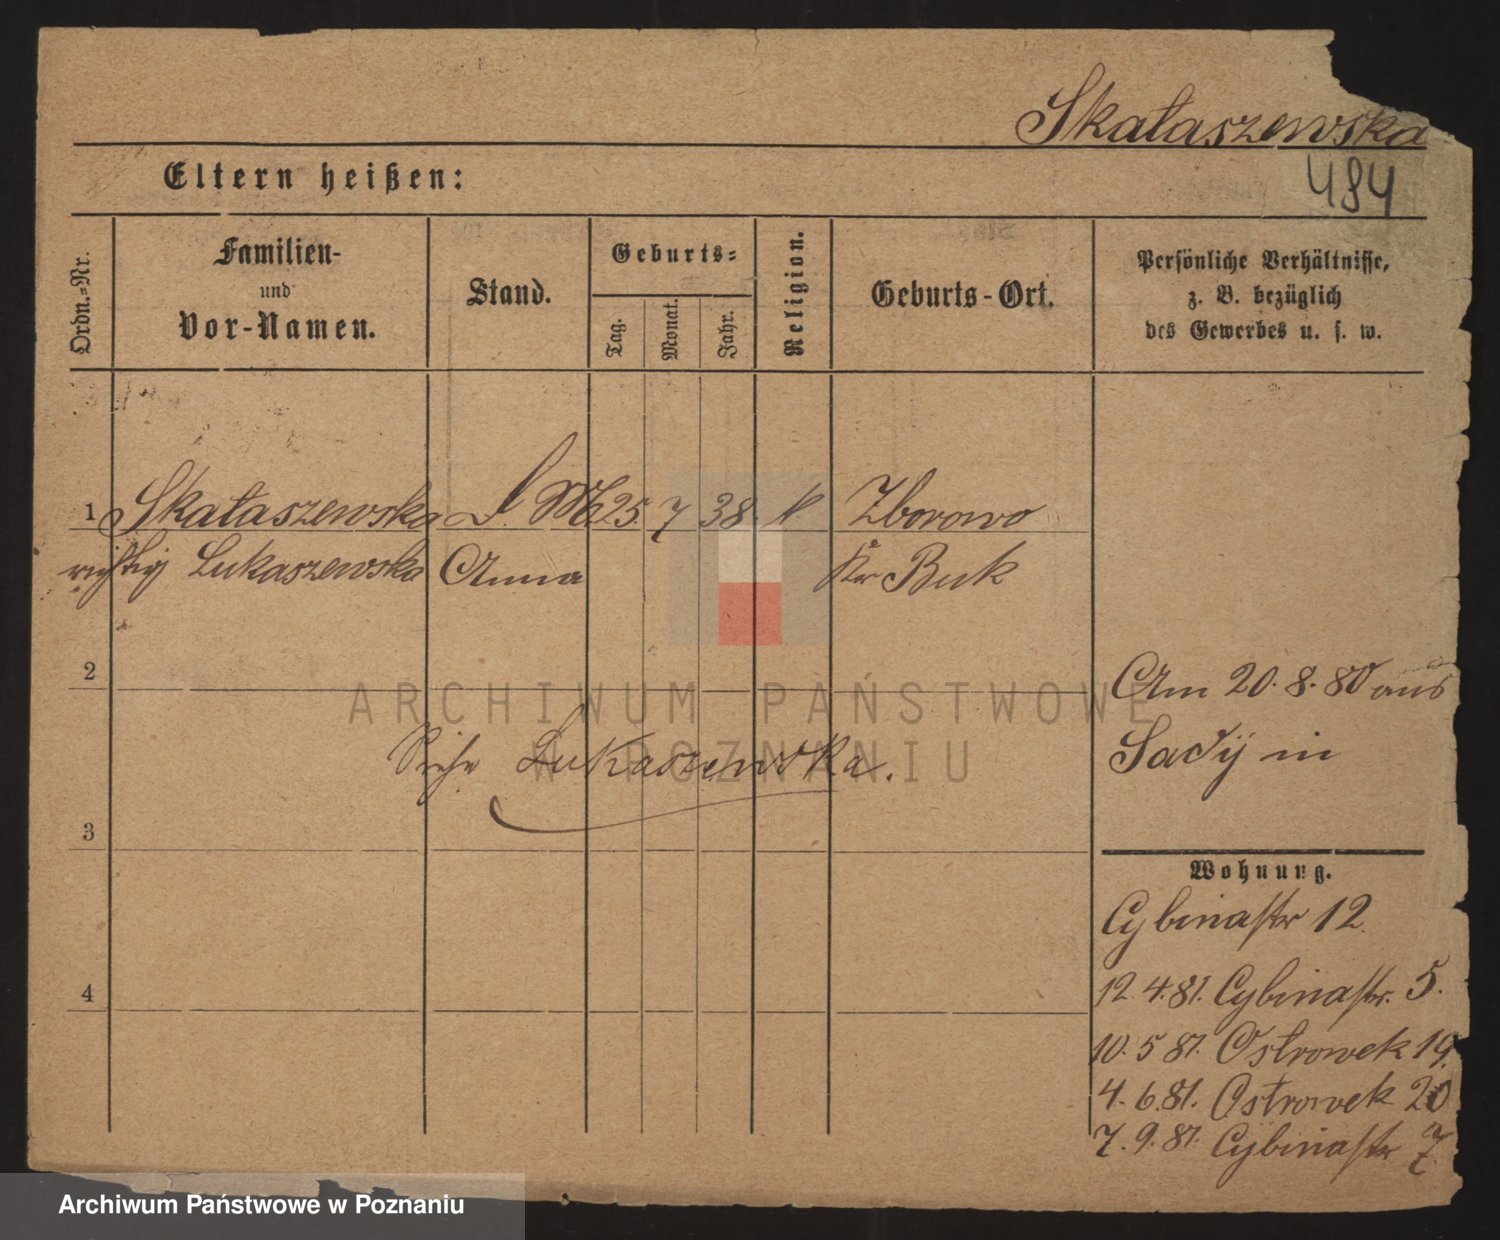 Skałaszewska
484
Eltern heißen:
Ordn.-Nr.
Familien-
und
Vor-Namen.
Stand.
Geburts-
Tag.
Monat.
Jahr.
Religion.
Geburts-Ort.
Persönliche Verhältnisse,
z. B. bezüglich
des Gewerbes u. s. w.
1 Skałaszewska D. M 25. 7 38 k Zborowo
richtig Lukaszewska Anna Kr Buk
2
Am 20. 8. 80 aus
Sady in
Siehe Lukaszewska.
3
Wohnung.
Cybinastr 12
4
12. 4. 81. Cybinastr. 5.
10. 5 81. Ostrowek 19
4. 6. 81. Ostrowek 20
7. 9. 81. Cybinastr 7
ARCHIWUM PAŃSTWOWE
W POZNANIU
Archiwum Państwowe w Poznaniu